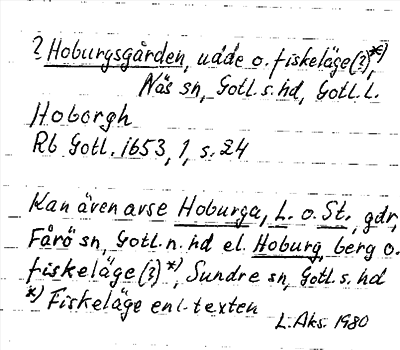 ? Hoburgsgården, udde o. fiskeläge(?)*),
Näs sn, Gotl. s. hd, Gotl. l.
Hoborgh
Rb Gotl. 1653, 1, s. 24
Kan även avse Hoburga, L. o. St., gdr,
Fårö sn, Gotl. n. hd el. Hoburg, berg o.
fiskeläge(?)*), Sundre sn, Gotl. s. hd
*) Fiskeläge enl. texten
L. Aks. 1980